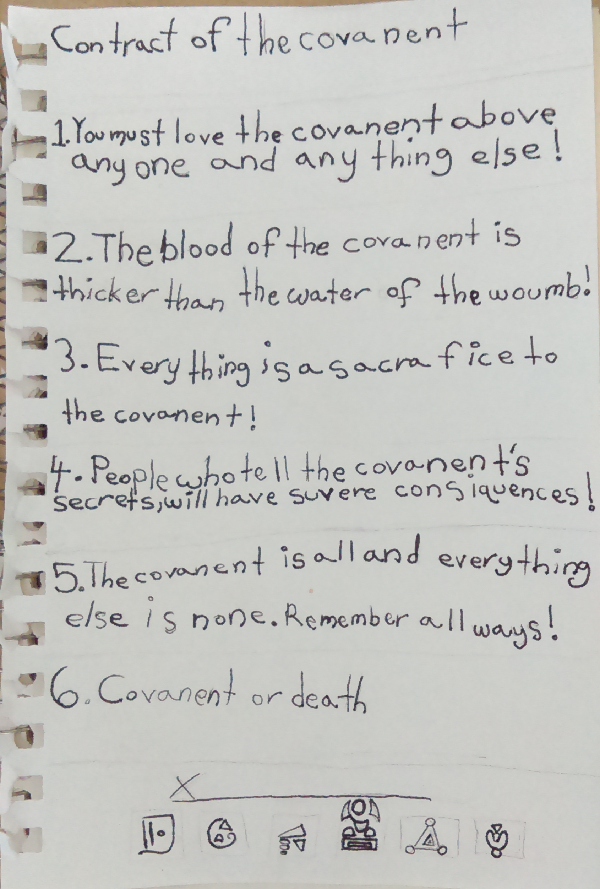 Contract of the covanent
1. You must love the covanent above
any one and any thing else!
2. The blood of the covanent is
thicker than the water of the woumb!
3. Every thing is a sacrafice to
the covanent!
4. People who tell the covanent's
secrets, will have suvere consiquences!
5. The covanent is all and everything
else is none. Remember all ways!
6. Covanent or death
X